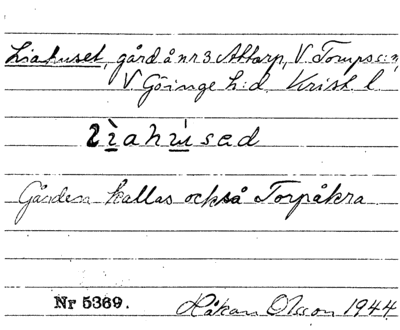 Liahuset, gård å nr 3 Attarp, V. Torups s:n,
V Göinge h:d. Krist. l
2 l̀ìahu̇̀sed
Gården kallas också Torpåkra
Nr 5369. Håkan Olsson 1944